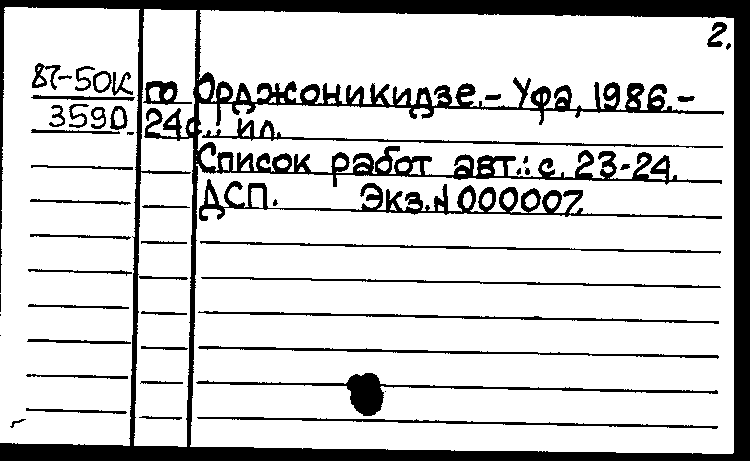 2.
87-50К по Орджоникидзе.- Уфа, 1986.-
3590 24с.: ил.
Список работ авт.: с. 23-24.
ДСП. Экз.N000007.